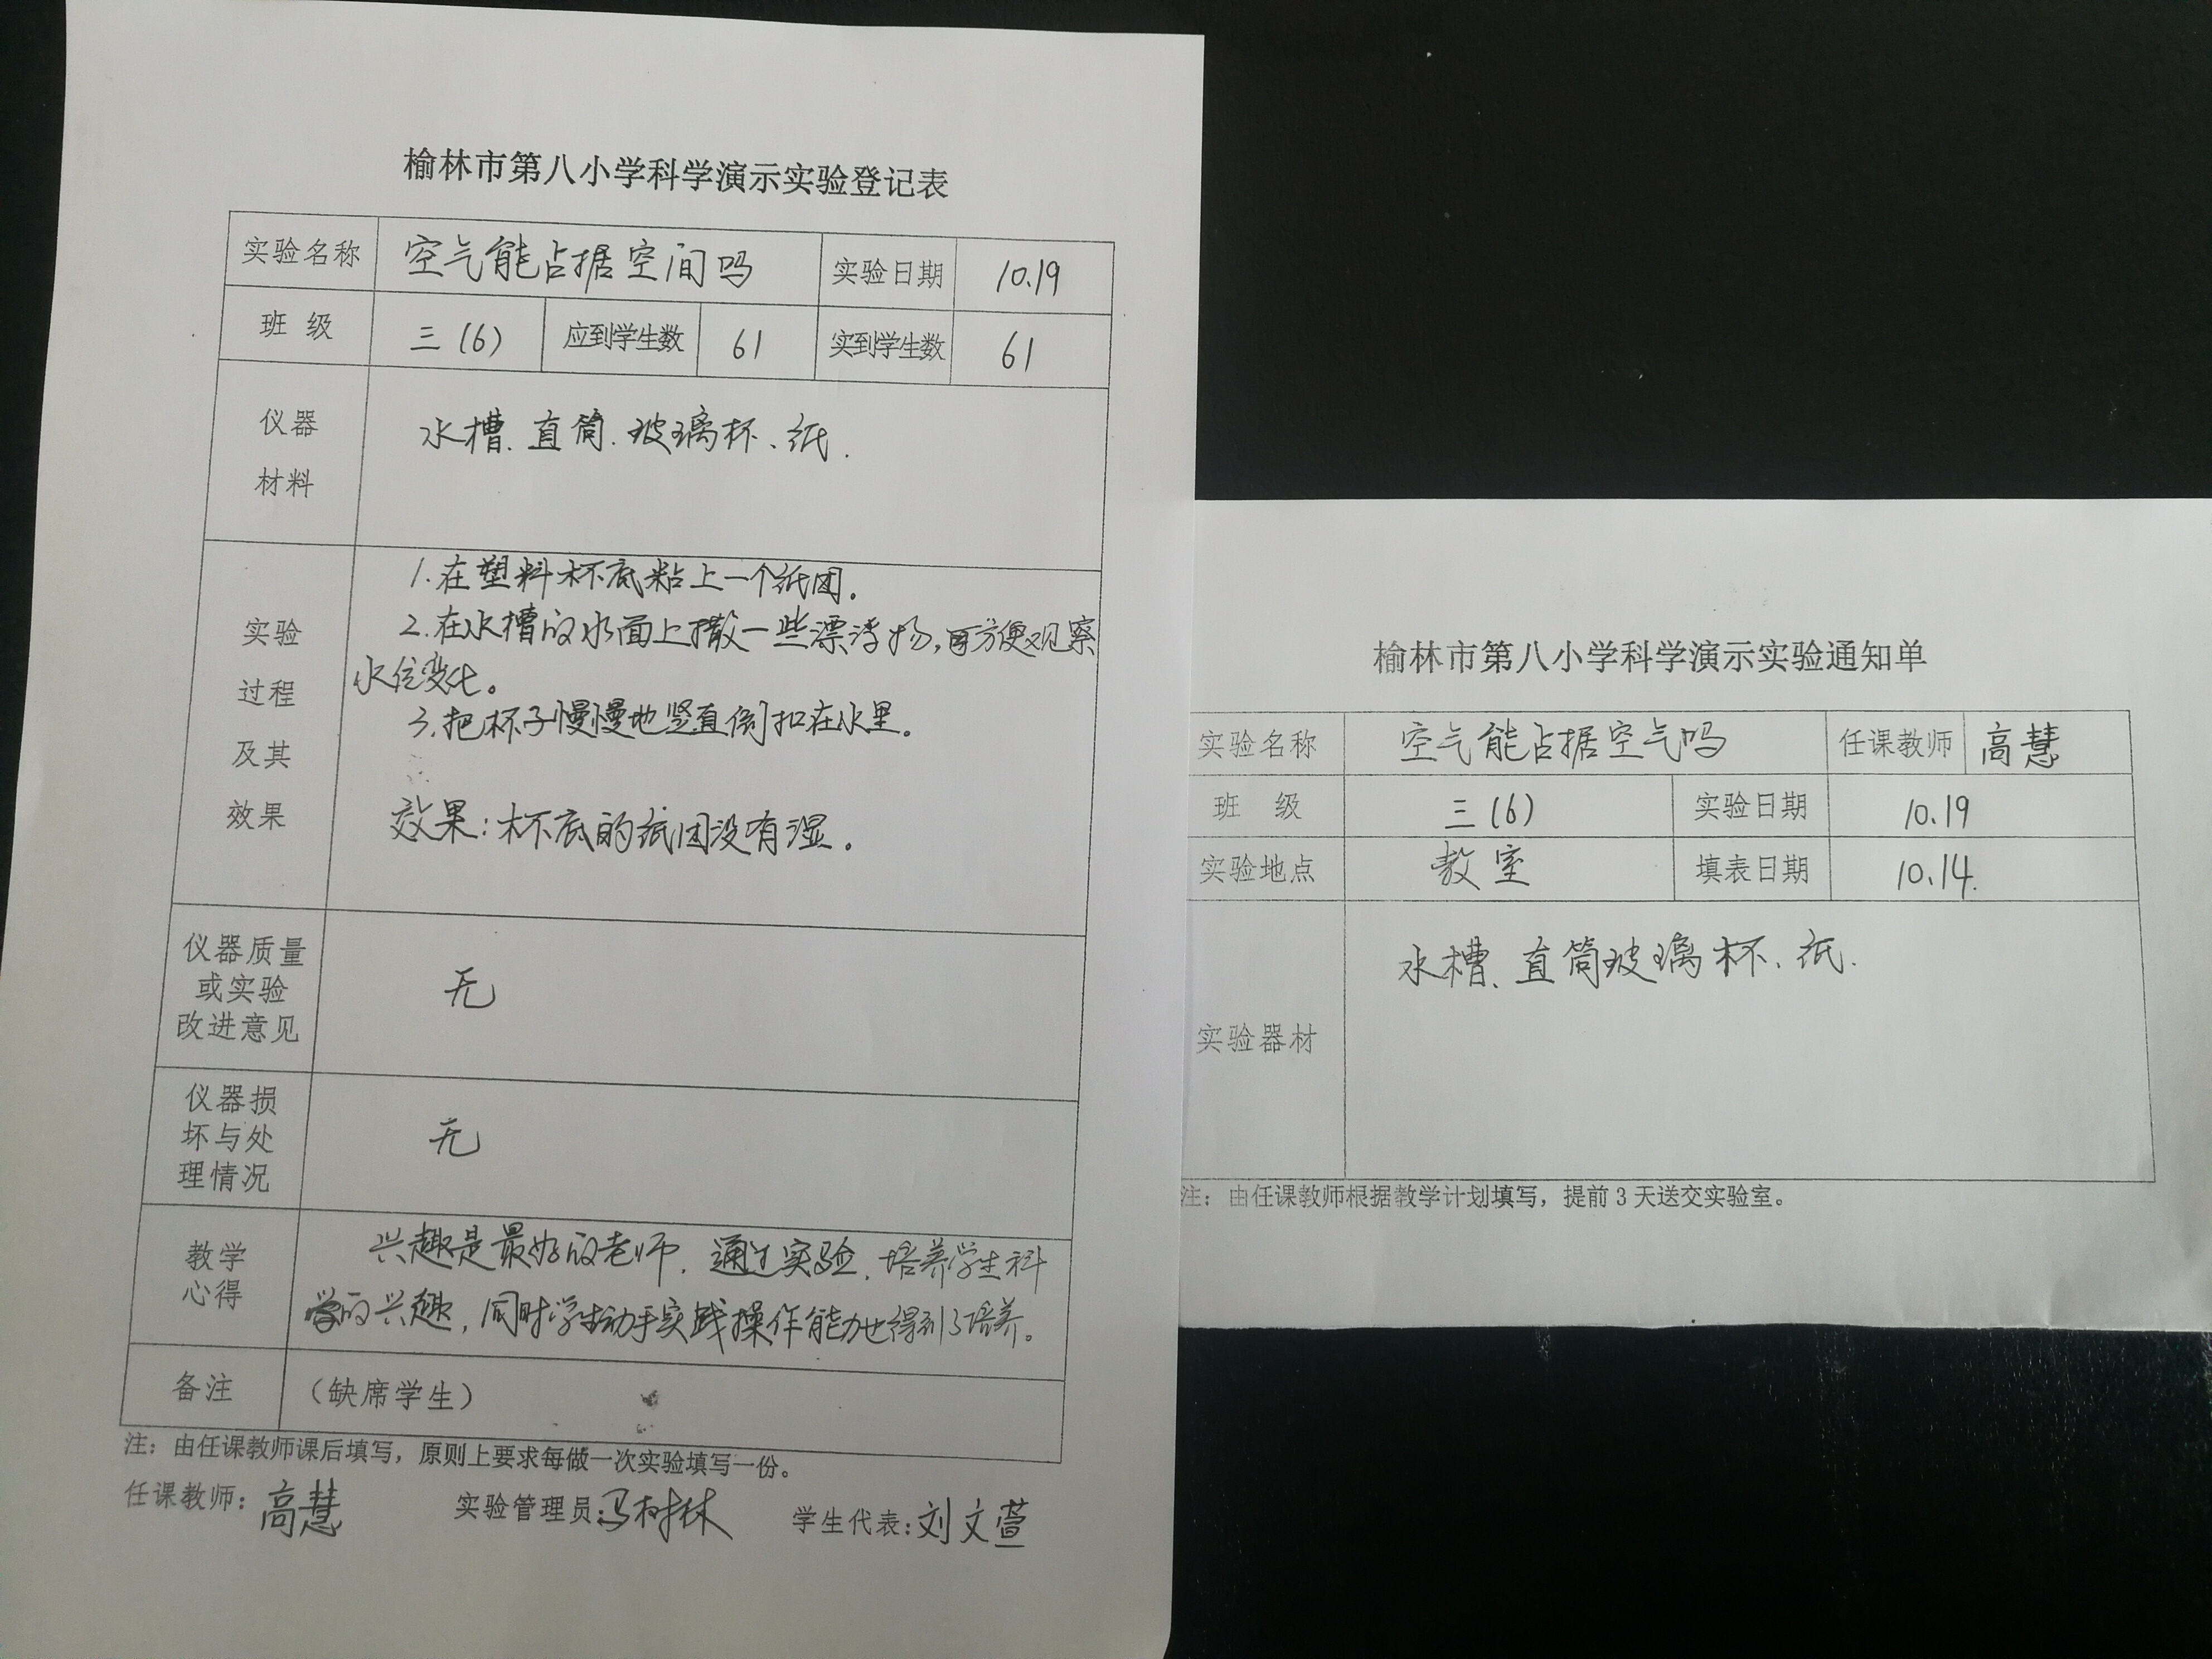 榆林市第八小学科学演示实验登记表
实验名称 空气能占据空间吗 实验日期 10.19
班 级 三(6) 应到学生数 61 实到学生数 61
仪器
材料
水槽、直筒、玻璃杯、纸.
实验
过程
及其
效果
1.在塑料杯底粘上一个纸团。
2.在水槽的水面上撒一些漂浮物,方便观察
水位变化。
3.把杯子慢慢地竖直倒扣在水里。
效果:杯底的纸团没有湿。
仪器质量
或实验
改进意见
无
仪器损
坏与处
理情况
无
教学
心得
兴趣是最好的老师,通过实验,培养学生科
学的兴趣,同时学生动手实践操作能力也得到了培养。
备注 (缺席学生)
注:由任课教师课后填写,原则上要求每做一次实验填写一份。
任课教师:高慧 实验管理员:冯树林 学生代表:刘文萱
榆林市第八小学科学演示实验通知单
实验名称 空气能占据空气吗 任课教师 高慧
班 级 三(6) 实验日期 10.19
实验地点 教室 填表日期 10.14.
实验器材
水槽、直筒玻璃杯、纸.
注:由任课教师根据教学计划填写,提前3天送交实验室。